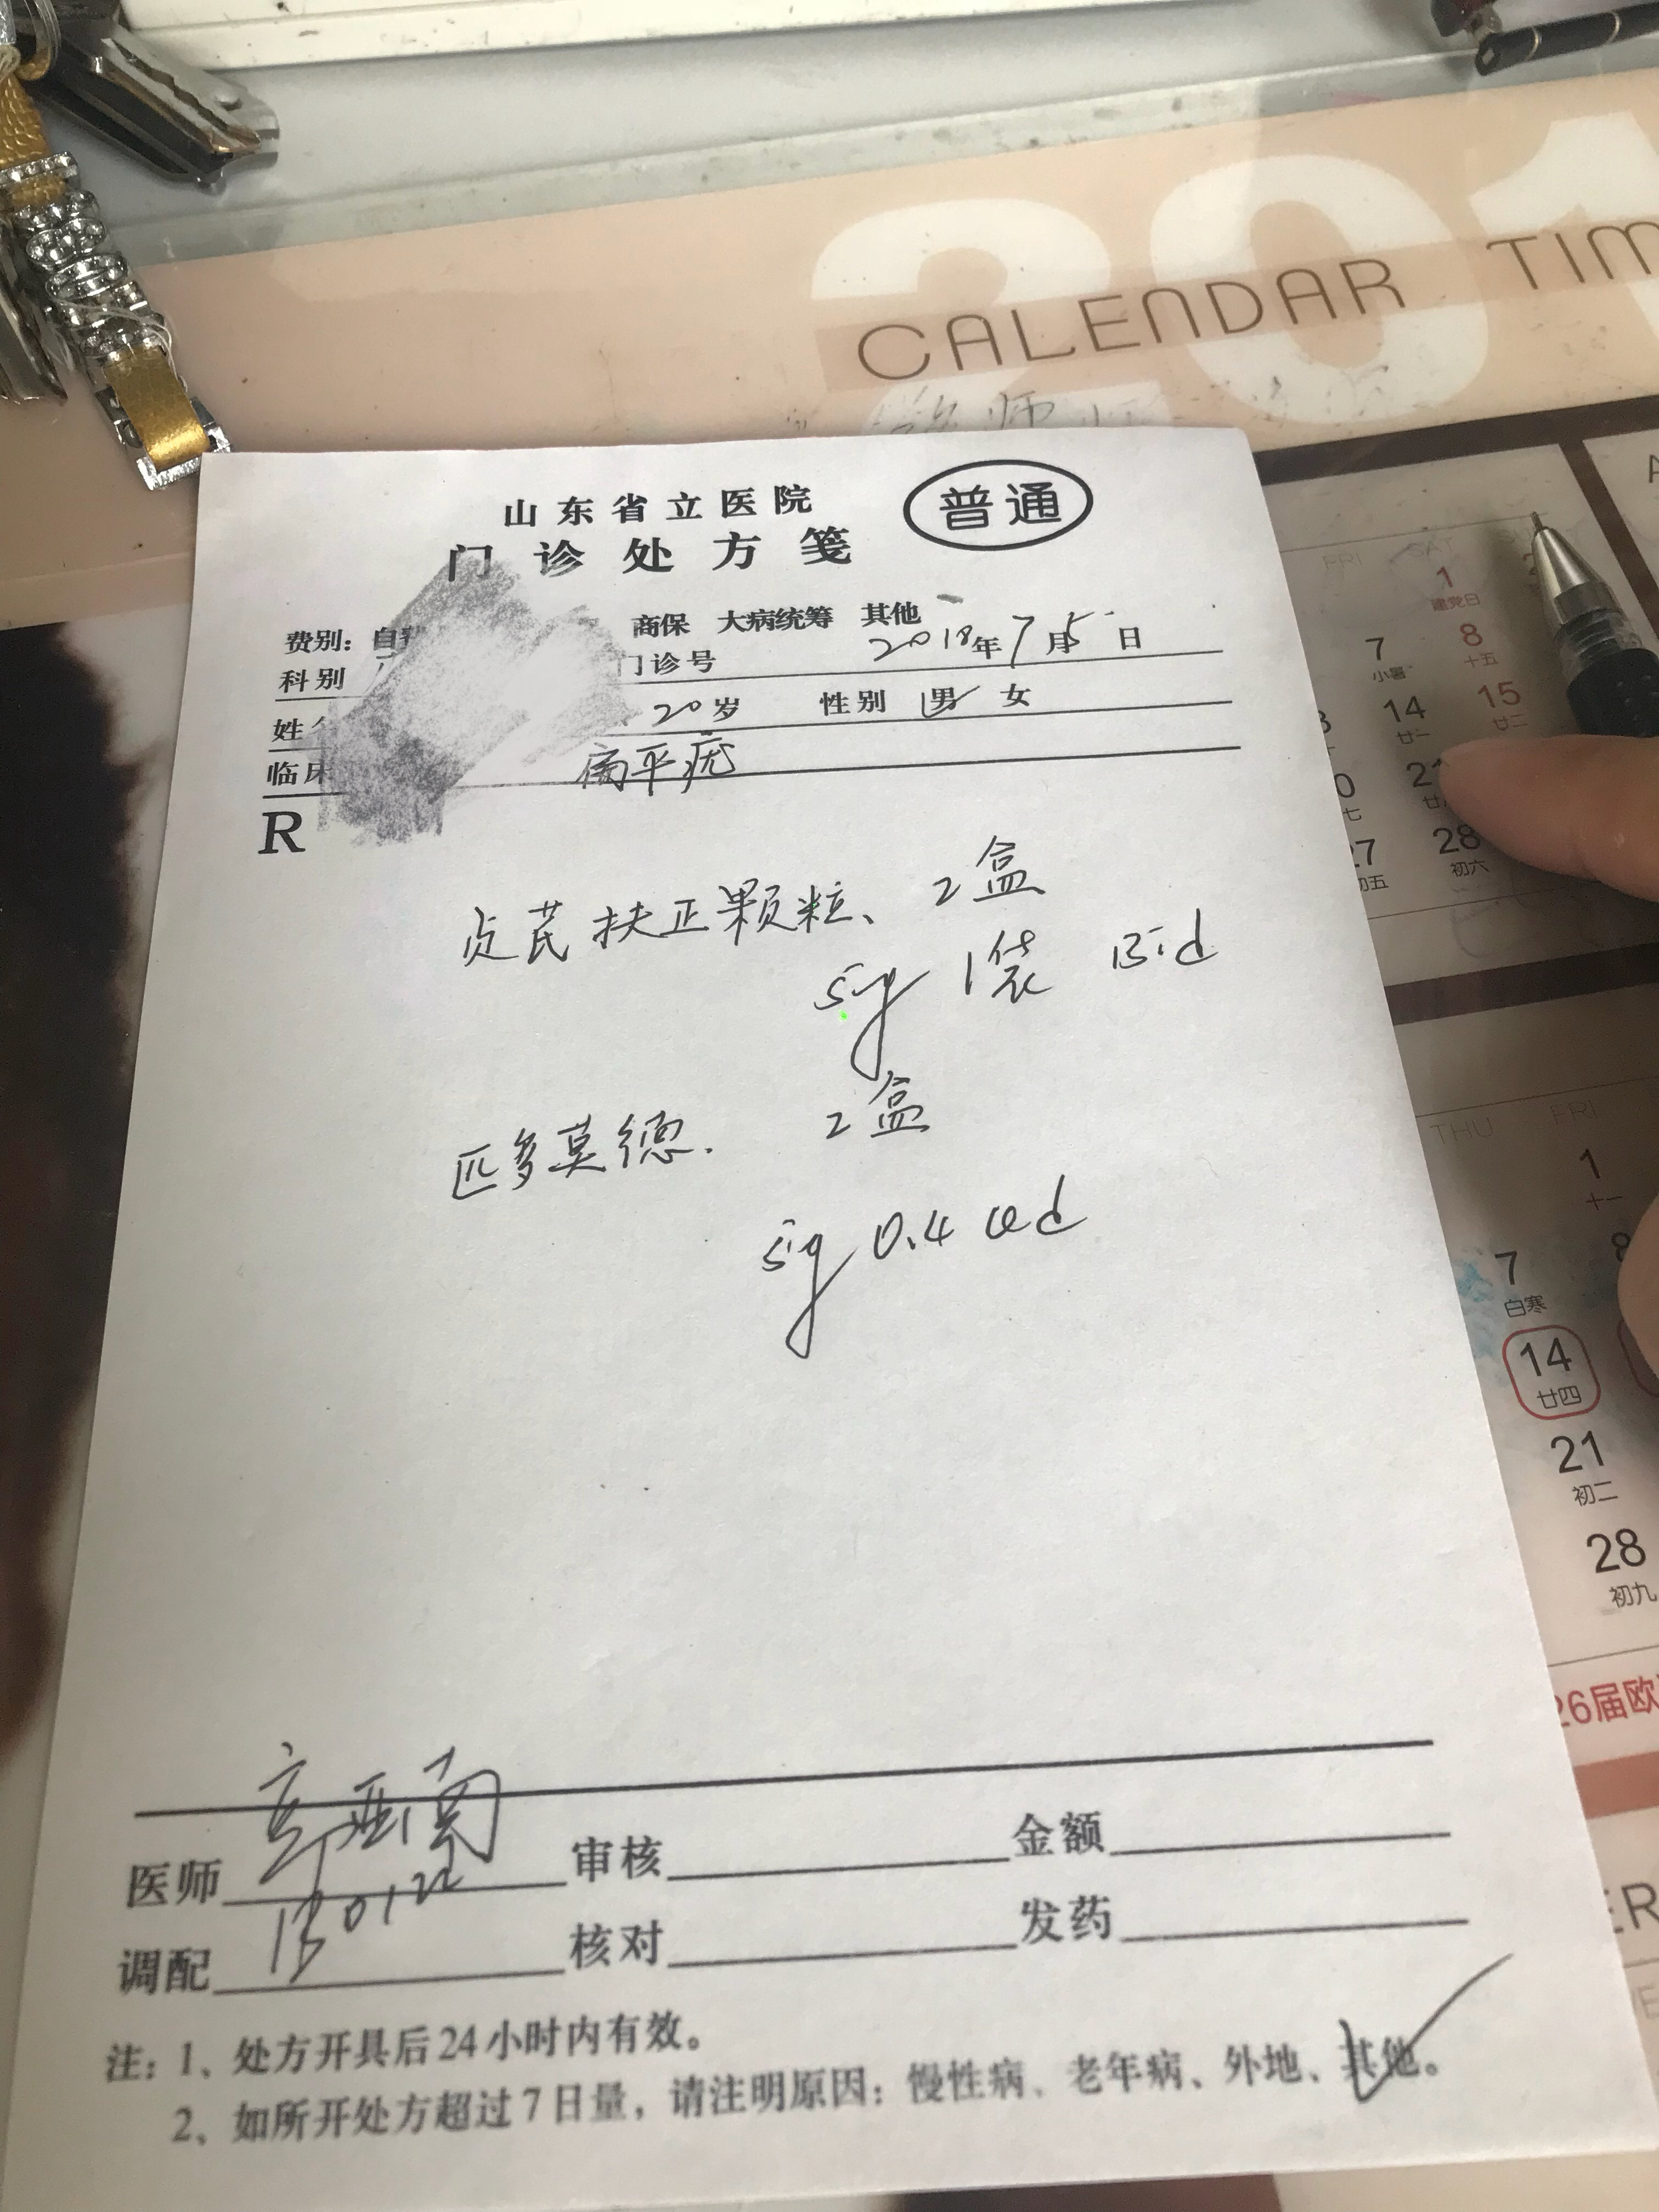 CALENDAR TIM
山东省立医院
普通
门诊处方笺
费别：自 商保 大病统筹 其他
科别 门诊号 2018年7月5日
姓 20岁 性别 男 女
临床 扁平疣
R
贞芪扶正颗粒、 2盒
sig 1袋 Bid
匹多莫德. 2盒
sig 0.4 Qd
医师 审核 金额
调配 核对 发药
注：1、处方开具后24小时内有效。
2、如所开处方超过7日量，请注明原因：慢性病、老年病、外地、其他。
FRI SAT
1
建党日
7 8
小暑 十五
14 15
廿一 廿二
28
初六
THU FRI
1
十一
7 8
白寒
14
廿四
21
初二
28
初九
26届欧